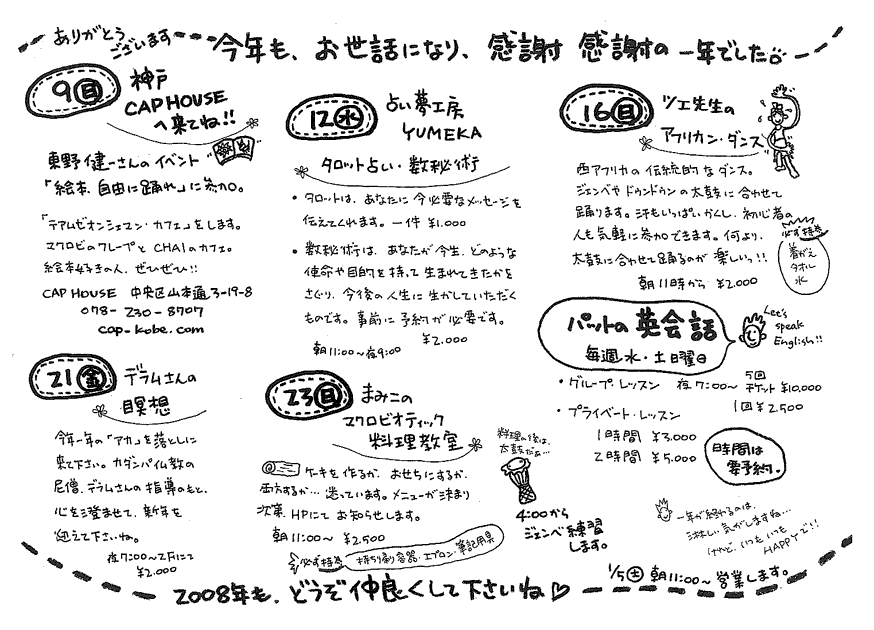 ありがとう
ございます
今年も、お世話になり、感謝 感謝の 一年でした
9 日 神戸
CAP HOUSE
へ来てね!!
東野健一さんのイベント
「絵本、自由に踊れ」に参加。
「テアムゼオンシェマン・カフェ」をします。
マクロビのクレープと CHAIのカフェ。
絵本好きの人、ぜひぜひ!!
CAP HOUSE 中央区山本通3-19-8
078-230-8707
cap-kobe.com
12 水 占い夢工房
YUMEKA
タロット占い・数秘術
・タロットは、あなたに今必要なメッセージを
伝えてくれます。一件 ¥1.000
・数秘術は、あなたが今生、どのような
使命や目的を持って生まれてきたかを
さぐり、今後の人生に生かしていただく
ものです。事前に予約が必要です。
¥2.000
朝11:00〜夜9:00
16 日 ツェ先生の
アフリカン・ダンス
西アフリカの伝統的なダンス。
ジェンベやドゥンドゥンの太鼓に合わせて
踊ります。汗もいっぱいかくし、初心者の
人も気軽に参加できます。何より、
太鼓に合わせて踊るのが楽しいっ!!
朝11時から ¥2.000
必ず持参
着がえ
タオル
水
パットの英会話
毎週、水・土曜日
Let's
speak
English!!
・グループ・レッスン 夜7:00〜 5回
チケット ¥10.000
1回 ¥2.500
・プライベート・レッスン
1時間 ¥3.000
2時間 ¥5.000
時間は
要予約.
21 金 デラムさんの
瞑想
今年一年の「アカ」を落としに
来て下さい。カダンパ仏教の
尼僧、デラムさんの指導のもと、
心を澄ませて、新年を
迎えて下さいね。
夜7:00〜2Fにて
¥2.000
23 日 まみこの
マクロビオティック
料理教室
ケーキを作るか、おせちにするか、
両方するか…迷っています。メニューが決まり
次第、HPにてお知らせします。
朝11:00〜 ¥2.500
必ず持参
持ち帰り容器・エプロン・筆記用具
料理の後は、
太鼓だぁ…
4:00から
ジェンベ練習
します。
一年が終わるのは、
淋しい気がしますね…
けれど、いつもいつも
HAPPYで!!
1/5 土 朝11:00〜 営業します。
2008年も、どうぞ仲良くして下さいね♡